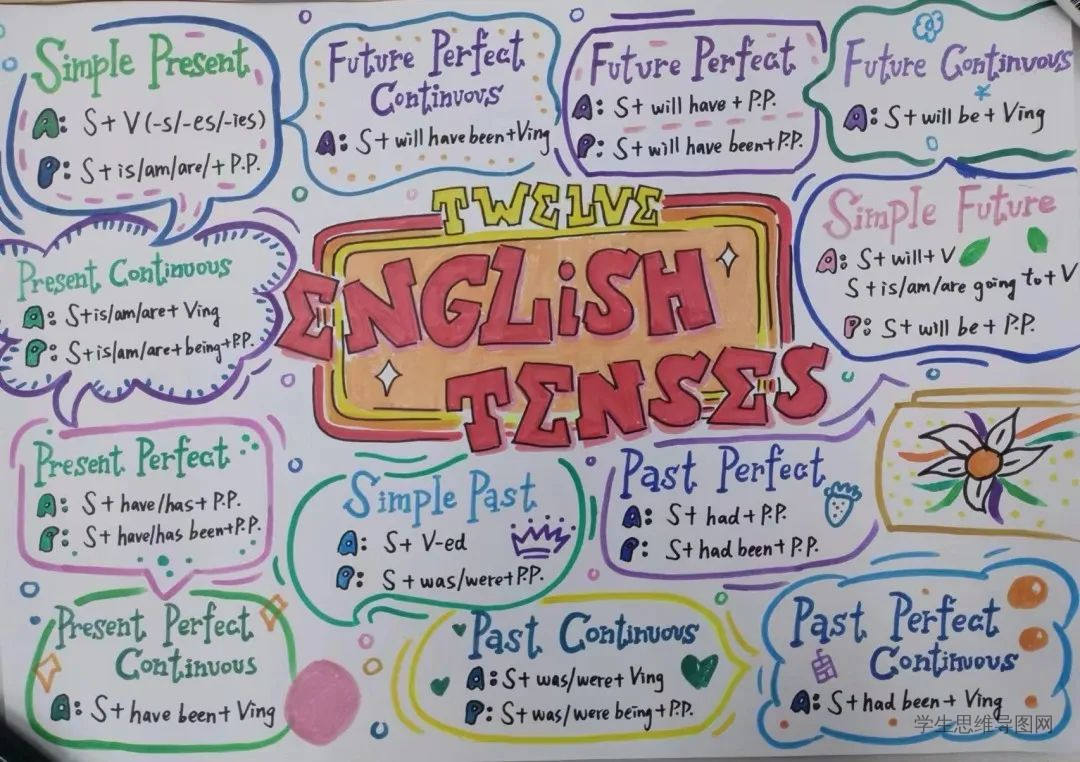 Simple Present
A: S+V(-s/-es/-ies)
P: S+is/am/are/+P.P.
Future Perfect
Continuous
A: S+will have been+Ving
Future Perfect
A: S+will have+P.P.
P: S+will have been+P.P.
Future Continuous
A: S+will be+Ving
TWELVE
ENGLiSH
TENSES
Present Continuous
A: S+is/am/are+Ving
P: S+is/am/are+being+P.P.
Simple Future
A: S+will+V
S+is/am/are going to+V
P: S+will be+P.P.
Present Perfect
A: S+have/has+P.P.
P: S+have/has been+P.P.
Simple Past
A: S+V-ed
P: S+was/were+P.P.
Past Perfect
A: S+had+P.P.
P: S+had been+P.P.
Present Perfect
Continuous
A: S+have been+Ving
Past Continuous
A: S+was/were+Ving
P: S+was/were being+P.P.
Past Perfect
Continuous
A: S+had been+Ving
学生思维导图网